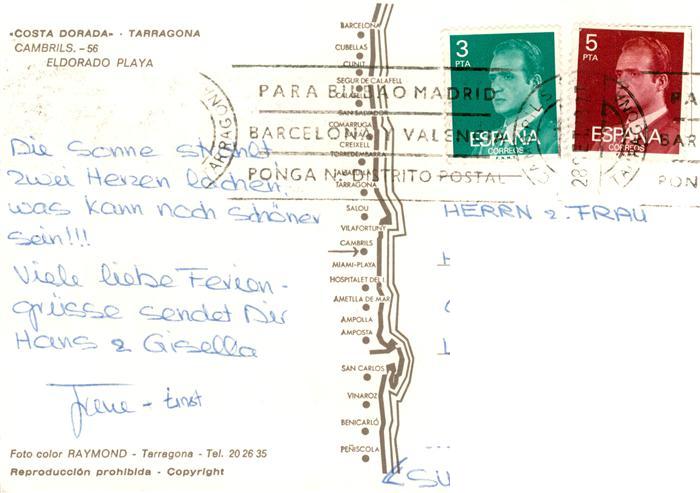 «COSTA DORADA» - TARRAGONA
CAMBRILS. - 56
ELDORADO PLAYA
Die Sonne strahlt
zwei Herzen lachen,
was kann noch schöner
sein!!!
Viele liebe Ferien-
grüsse sendet Dir
Hans & Gisella
Irene - Ernst
Foto color RAYMOND - Tarragona - Tel. 20 26 35
Reproducción prohibida - Copyright
BARCELONA
CUBELLAS
CUNIT
SEGUR DE CALAFELL
CALAFELL
SAN SALVADOR
COMARRUGA
CREIXELL
TORREDEMBARRA
TARRAGONA
SALOU
VILAFORTUNY
CAMBRILS
MIAMI-PLAYA
HOSPITALET DEL I.
AMETLLA DE MAR
AMPOLLA
AMPOSTA
SAN CARLOS
VINAROZ
BENICARLÓ
PEÑISCOLA
PARA BILBAO MADRID
BARCELONA Y VALENCIA
PONGA Nº DISTRITO POSTAL
3
PTA
ESPAÑA
CORREOS
5
PTA
ESPAÑA
CORREOS
PA
BAR
PON
HERRN & FRAU
SU